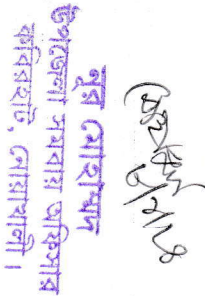 নুর মোহাম্মদ
উপজেলা সমবায় অফিসার
কবিরহাট, নোয়াখালী।